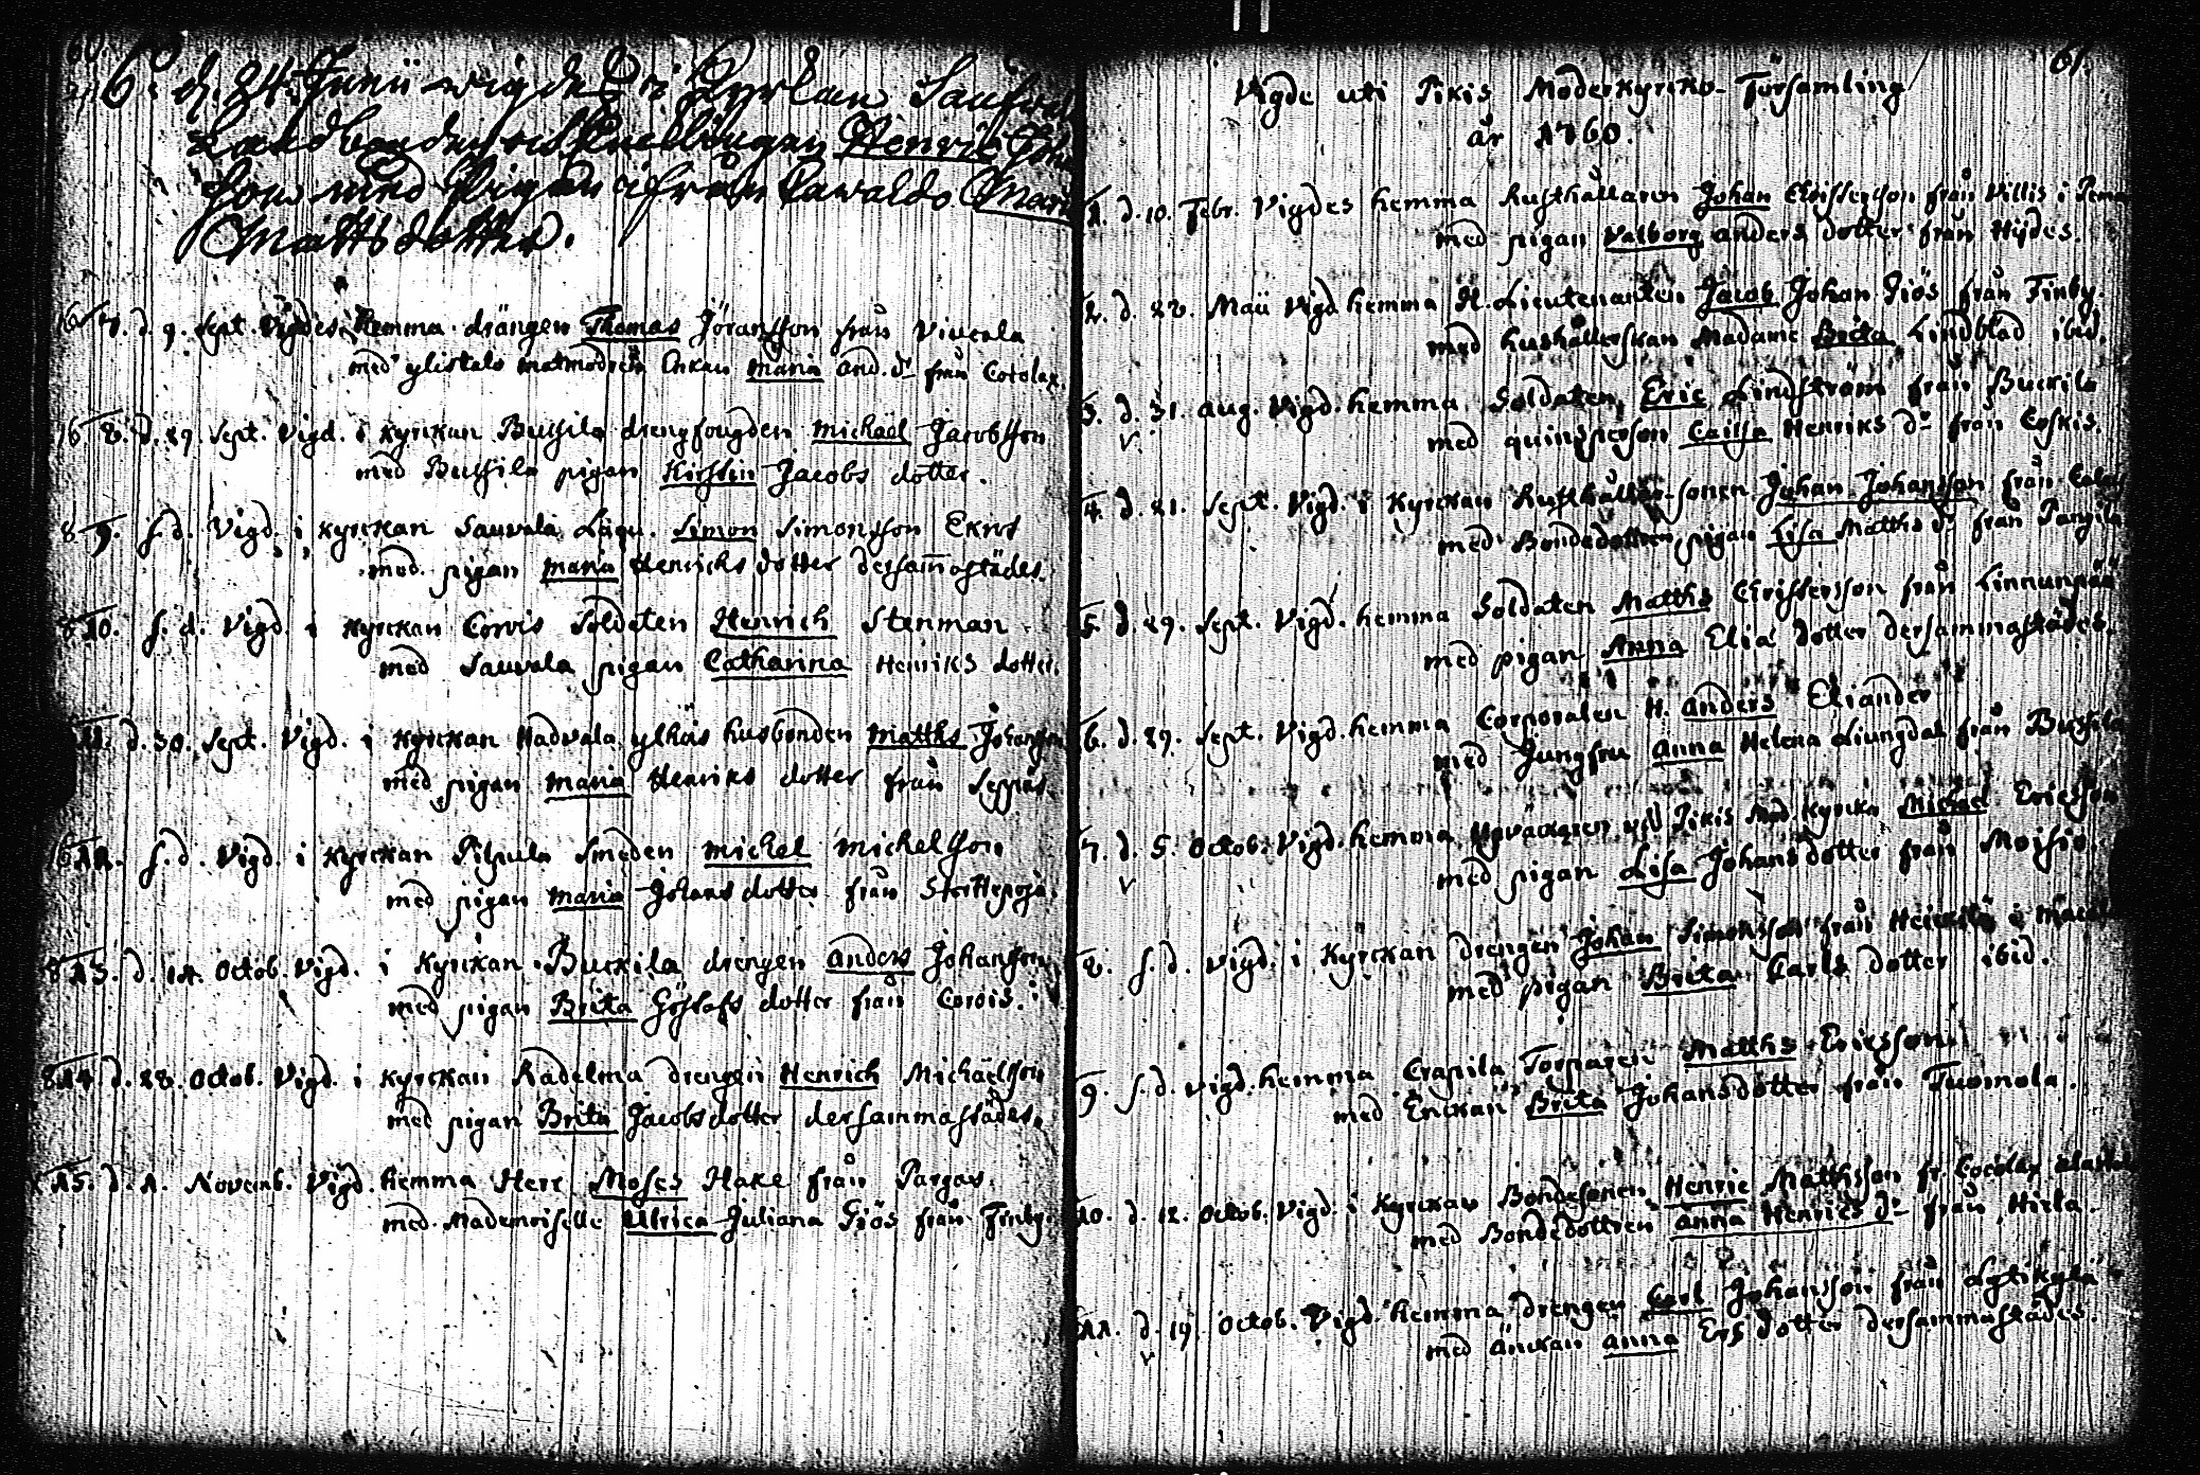 60.
6. d. 24. Junii vigdes i Kyrkan
Henric
som med Pigan ifrån Cawaldo
Matts dotter.
7. d. 9. Sept. Vigdes hemma drängen Thomas Jöransson från Viucala
med ylistalo matmodren Enkan Maria And. dr från Cocolax.
8. d. 29. Sept. Vigd. i Kyrckan drengfougden Michaël Jacobsson
med pigan Kirstin Jacobs dotter.
9. s. d. Vigd. i Kyrckan Sauvala Simon Simonsson
med pigan Maria Henrichs dotter dersam̅astädes.
10. s. d. Vigd. i Kyrckan Corvis Soldaten Henrich Stenman
med Sauvala pigan Catharina Henriks dotter.
11. d. 30. Sept. Vigd. i Kyrckan Hadvala husbonden Matths Johansson
med pigan Maria Henriks dotter från Seppäs.
12. s. d. Vigd. i Kyrckan Pilpula Smeden Michel Michelsson
med pigan Maria Johans dotter från
13. d. 14. Octob. Vigd. i Kyrckan Buckila drengen Anders Johansson
med pigan Brita Göstafs dotter från Corois.
14. d. 28. Octob. Vigd. i Kyrckan Radelma drengen Henrich Michaëlsson
med pigan Brita Jacobs dotter dersammastädes.
15. d. 1. Novemb. Vigd. hemma Herr Moses Hake från Pargas.
med Mademoiselle Ulrica Juliana Giös från Finby.
61.
Vigde uti Pikis Moderkyrko-Församling
år 1760.
1. d. 10. Febr. Vigdes hemma Rusthållaren Johan Christersson från Villis i
med pigan Valborg Anders dotter från Hÿdes.
2. d. 22. Maii Vigd. hemma H. Lieutenanten Jacob Johan Giös från Finby.
med hushållerskan Madame Brita Lindblad ibid.
3. d. 31. Aug. Vigd. hemma Soldaten Eric Lindström från Buckila
v. med quinsperson Caisa Henriks dr från
4. d. 21. Sept. Vigd. i Kyrckan Rusthållar-sonen Johan Johansson från
med Bondedottren pigan Lisa Matths dr från
5. d. 29. Sept. Vigd. hemma Soldaten Matths Christersson från Linnunpää
med pigan Anna Elia dotter dersammastädes.
6. d. 29. Sept. Vigd. hemma Corporalen H. Anders Eliander
med Jungfru Anna Helena Liungdal från
7. d. 5. Octob. Vigd. hemma vid Pikis Mod. Kyrcka Michel Ericsson
v med pigan Lisa Johans dotter från Moisio.
8. s. d. Vigd. i Kyrckan drengen Johan Simonsson från i
med pigan Brita Carls dotter ibid.
9. s. d. Vigd. hemma Crapila Torparen Matths Ericsson.
med Enckan Brita Johansdotter från Tuomola.
10. d. 12. Octob. Vigd. i Kyrckan Bondesonen Henric Mathsson fr. Cocolax
med Bondedottren Anna Henrics dr från Hirla.
11. d. 19. Octob. Vigd. hemma drengen Carl Johansson från Lytikylä
v med änckan Anna Ers dotter dersammastädes.